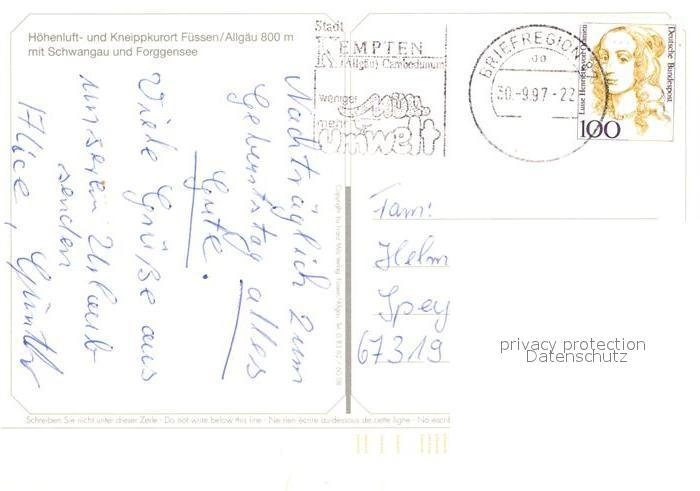 Höhenluft- und Kneippkurort Füssen/Allgäu 800 m
mit Schwangau und Forggensee
Stadt
KEMPTEN
(Allgäu) Cambodunum
weniger Müll
mehr
umwelt
BRIEFREGION 87
30.-9.97-22
Deutsche Bundespost
Luise Henriette von Oranien
100
Nachträglich zum
Geburtstag alles
Gute.
Viele Grüße aus
unserem Urlaub
senden
Alice, Günther
Fam:
Helm
Spey
67319
privacy protection
Datenschutz
Schreiben Sie nicht unter dieser Zeile · Do not write below this line · Ne rien écrire au-dessous de cette ligne · No escrib